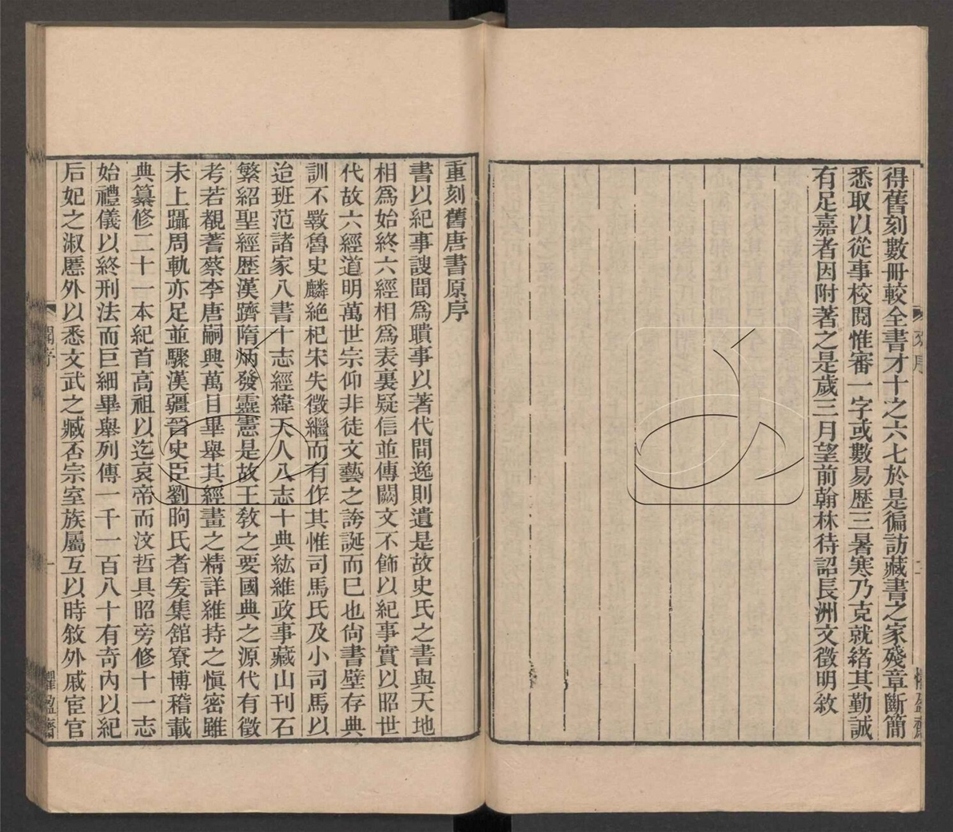 得舊刻數冊較全書才十之六七於是徧訪藏書之家殘章斷簡
悉取以從事校閱惟審一字或數易歷三暑寒乃克就緒其勤誠
有足嘉者因附著之是歲三月望前翰林待詔長洲文徵明敘
重刻舊唐書原序
書以紀事謏聞爲聵事以著代間逸則遺是故史氏之書與天地
相爲始終六經相爲表裏疑信並傳闕文不飾以紀事實以昭世
代故六經道明萬世宗仰非徒文藝之誇誕而巳也尙書壁存典
訓不斁魯史麟絶杞宋失徵繼而有作其惟司馬氏及小司馬以
迨班范諸家八書十志經緯天人八志十典紘維政事藏山刊石
繁紹聖經歴漢躋隋炳發靈憲是故王敎之要國典之源代有徵
考若覩蓍蔡李唐嗣興萬目畢舉其經畫之精詳維持之愼密雖
未上躡周軌亦足並驟漢疆晉史臣劉昫氏者爰集舘寮博稽載
典纂修二十一本紀首高祖以迄哀帝而汶哲具昭旁修十一志
始禮儀以終刑法而巨細畢舉列傳一千一百八十有奇內以紀
后妃之淑慝外以悉文武之臧否宗室族屬互以時敘外戚宦官